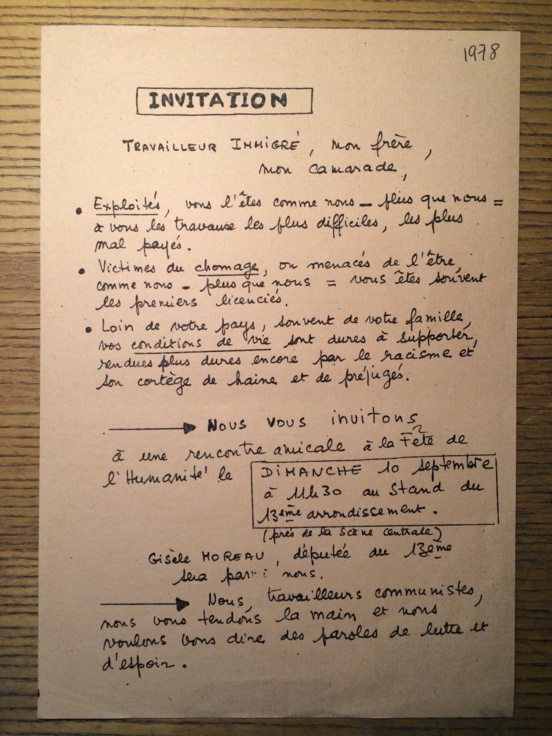 1978
INVITATION
TRAVAILLEUR IMMIGRÉ, mon frère,
mon camarade,
• Exploités, vous l'êtes comme nous – plus que nous =
à vous les travaux les plus difficiles, les plus
mal payés.
• Victimes du chomage, ou menacés de l'être,
comme nous – plus que nous = vous êtes souvent
les premiers licenciés.
• Loin de votre pays, souvent de votre famille,
vos conditions de vie sont dures à supporter,
rendues plus dures encore par le racisme et
son cortège de haine et de préjugés.
→ NOUS VOUS invitons
à une rencontre amicale à la Fête de
l'Humanité le DIMANCHE 10 septembre
à 11h30 au Stand du
13ème arrondissement.
(près de la Scène centrale)
Gisèle MOREAU, députée du 13ème
sera parmi nous.
→ Nous, travailleurs communistes,
nous vous tendons la main et nous
voulons vous dire des paroles de lutte et
d'espoir.